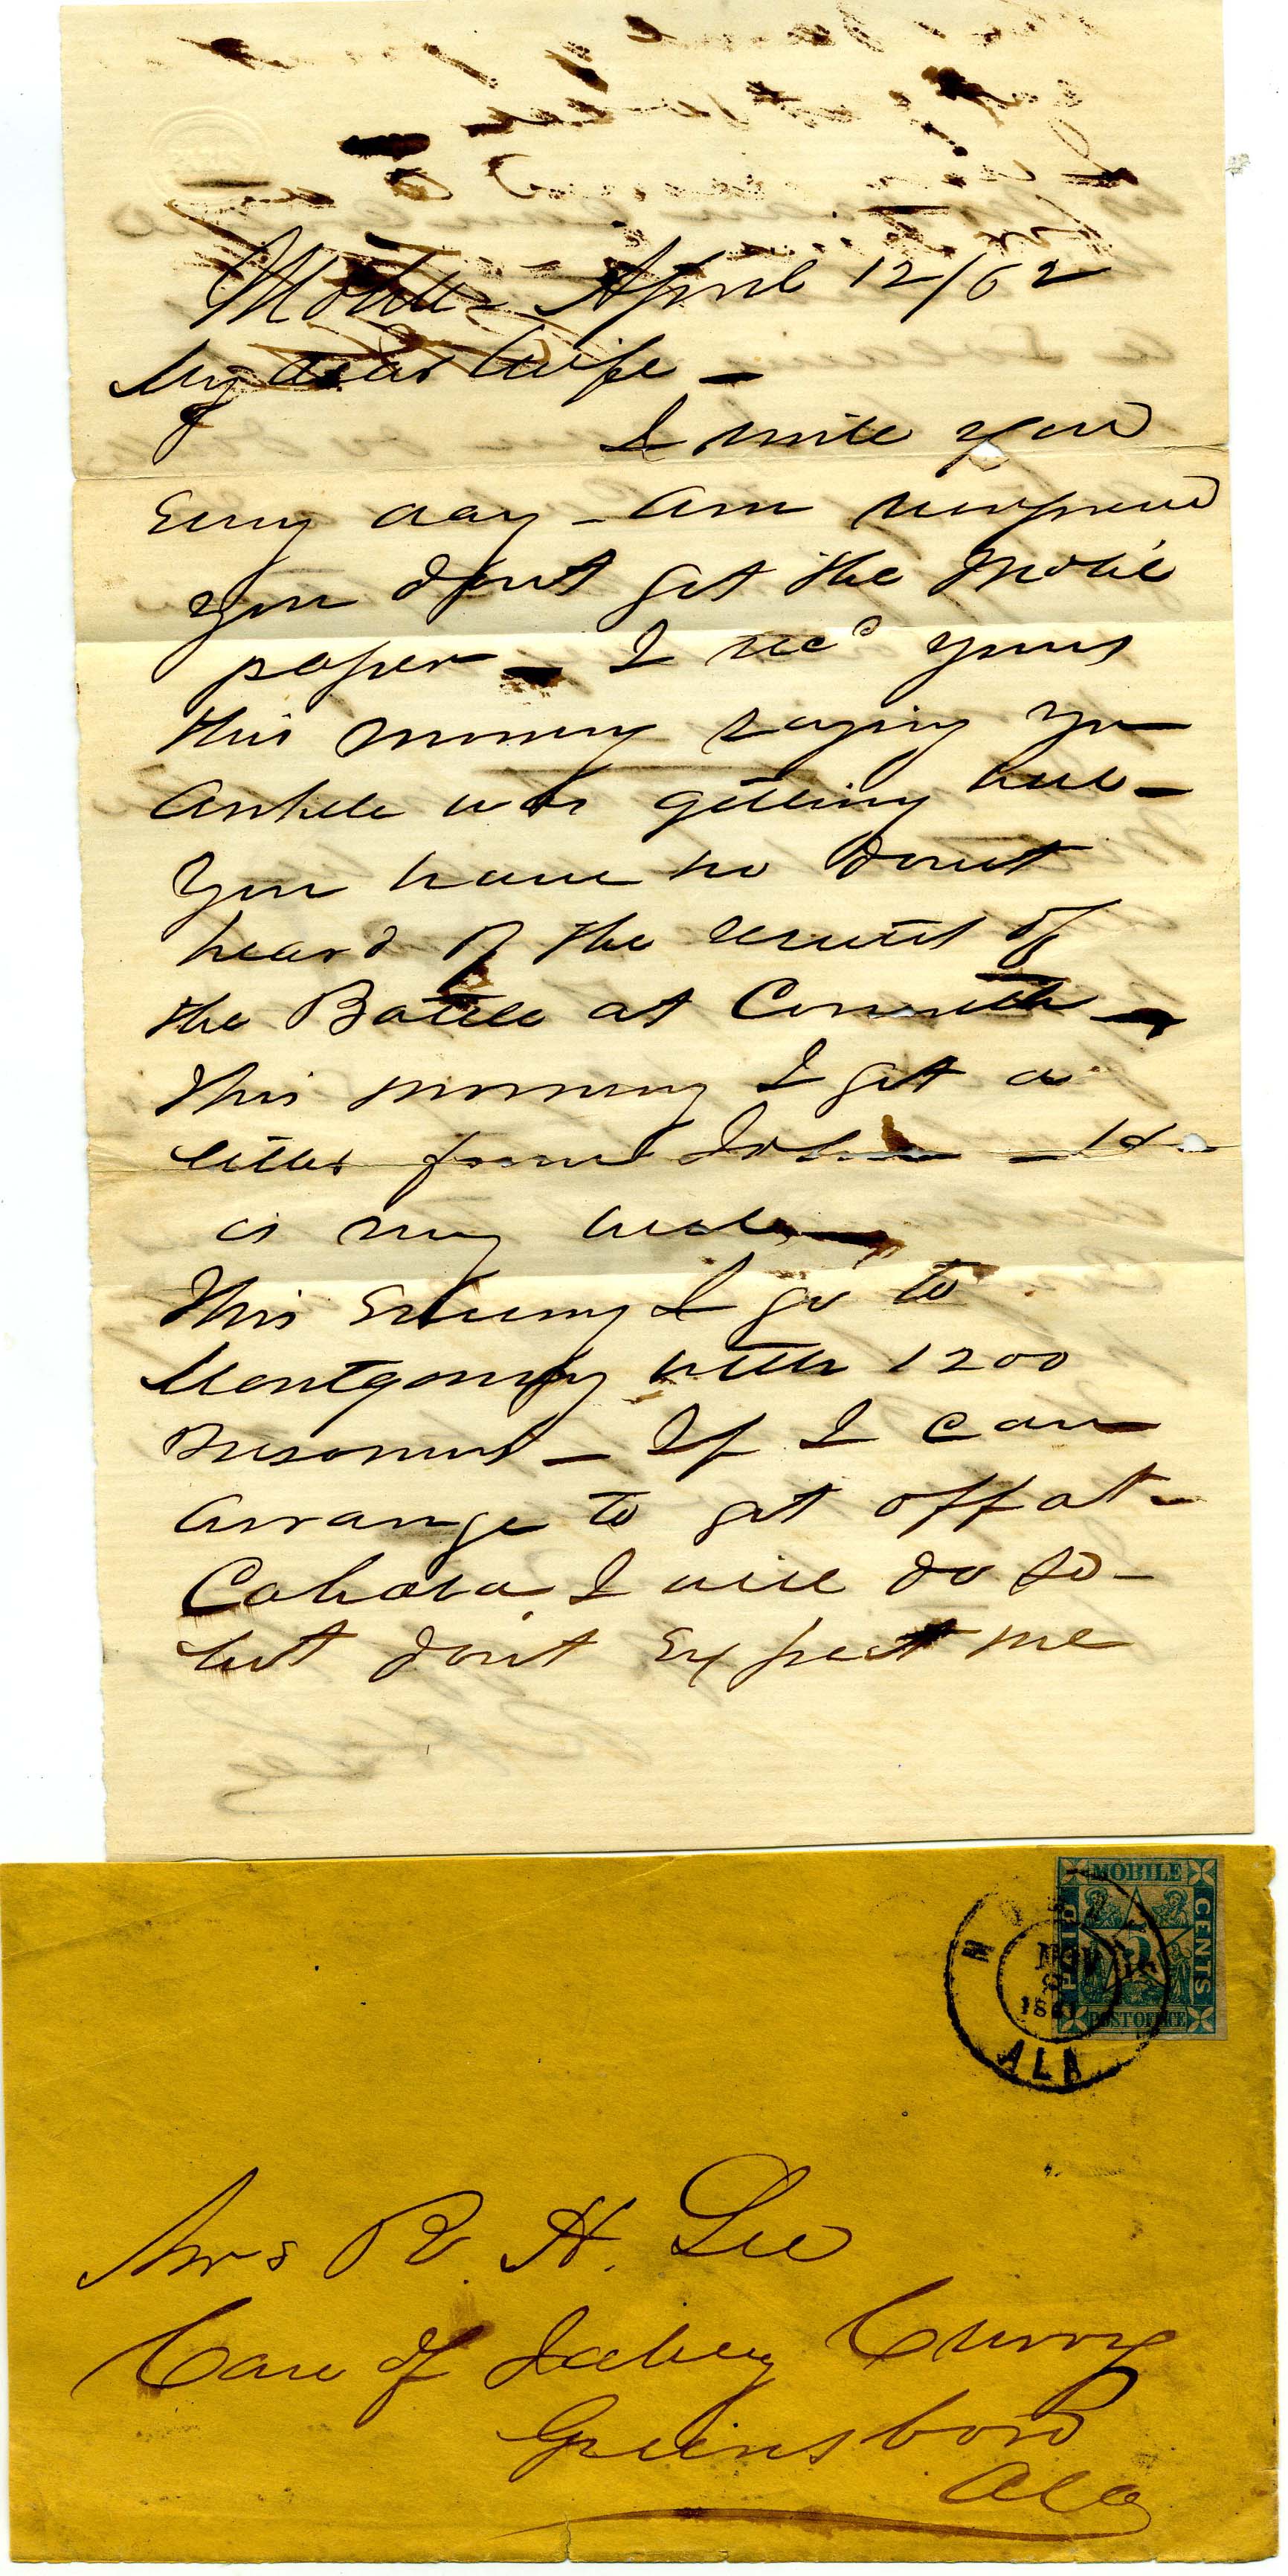 Mobile April 12/62
My dear Wife —
I write you
Every day - am surprised
you dont get the Mobile
paper — I recd yours
this morning saying yr
Ankle was getting well -
You have no doubt
heard of the result of
the Battle at Corinth —
this morning I got a
letter from John — He
is my
This Evening I go to
Montgomery with 1200
Prisoners - If I can
arrange to get off at -
Cahaba I will do so -
but dont Expect me
MOBILE
PAID 5 CENTS
POST OFFICE
MOBILE
NOV
9
1861
ALA
Mrs R. H. Lee
Care of Jabey Curry
Greensboro
Ala